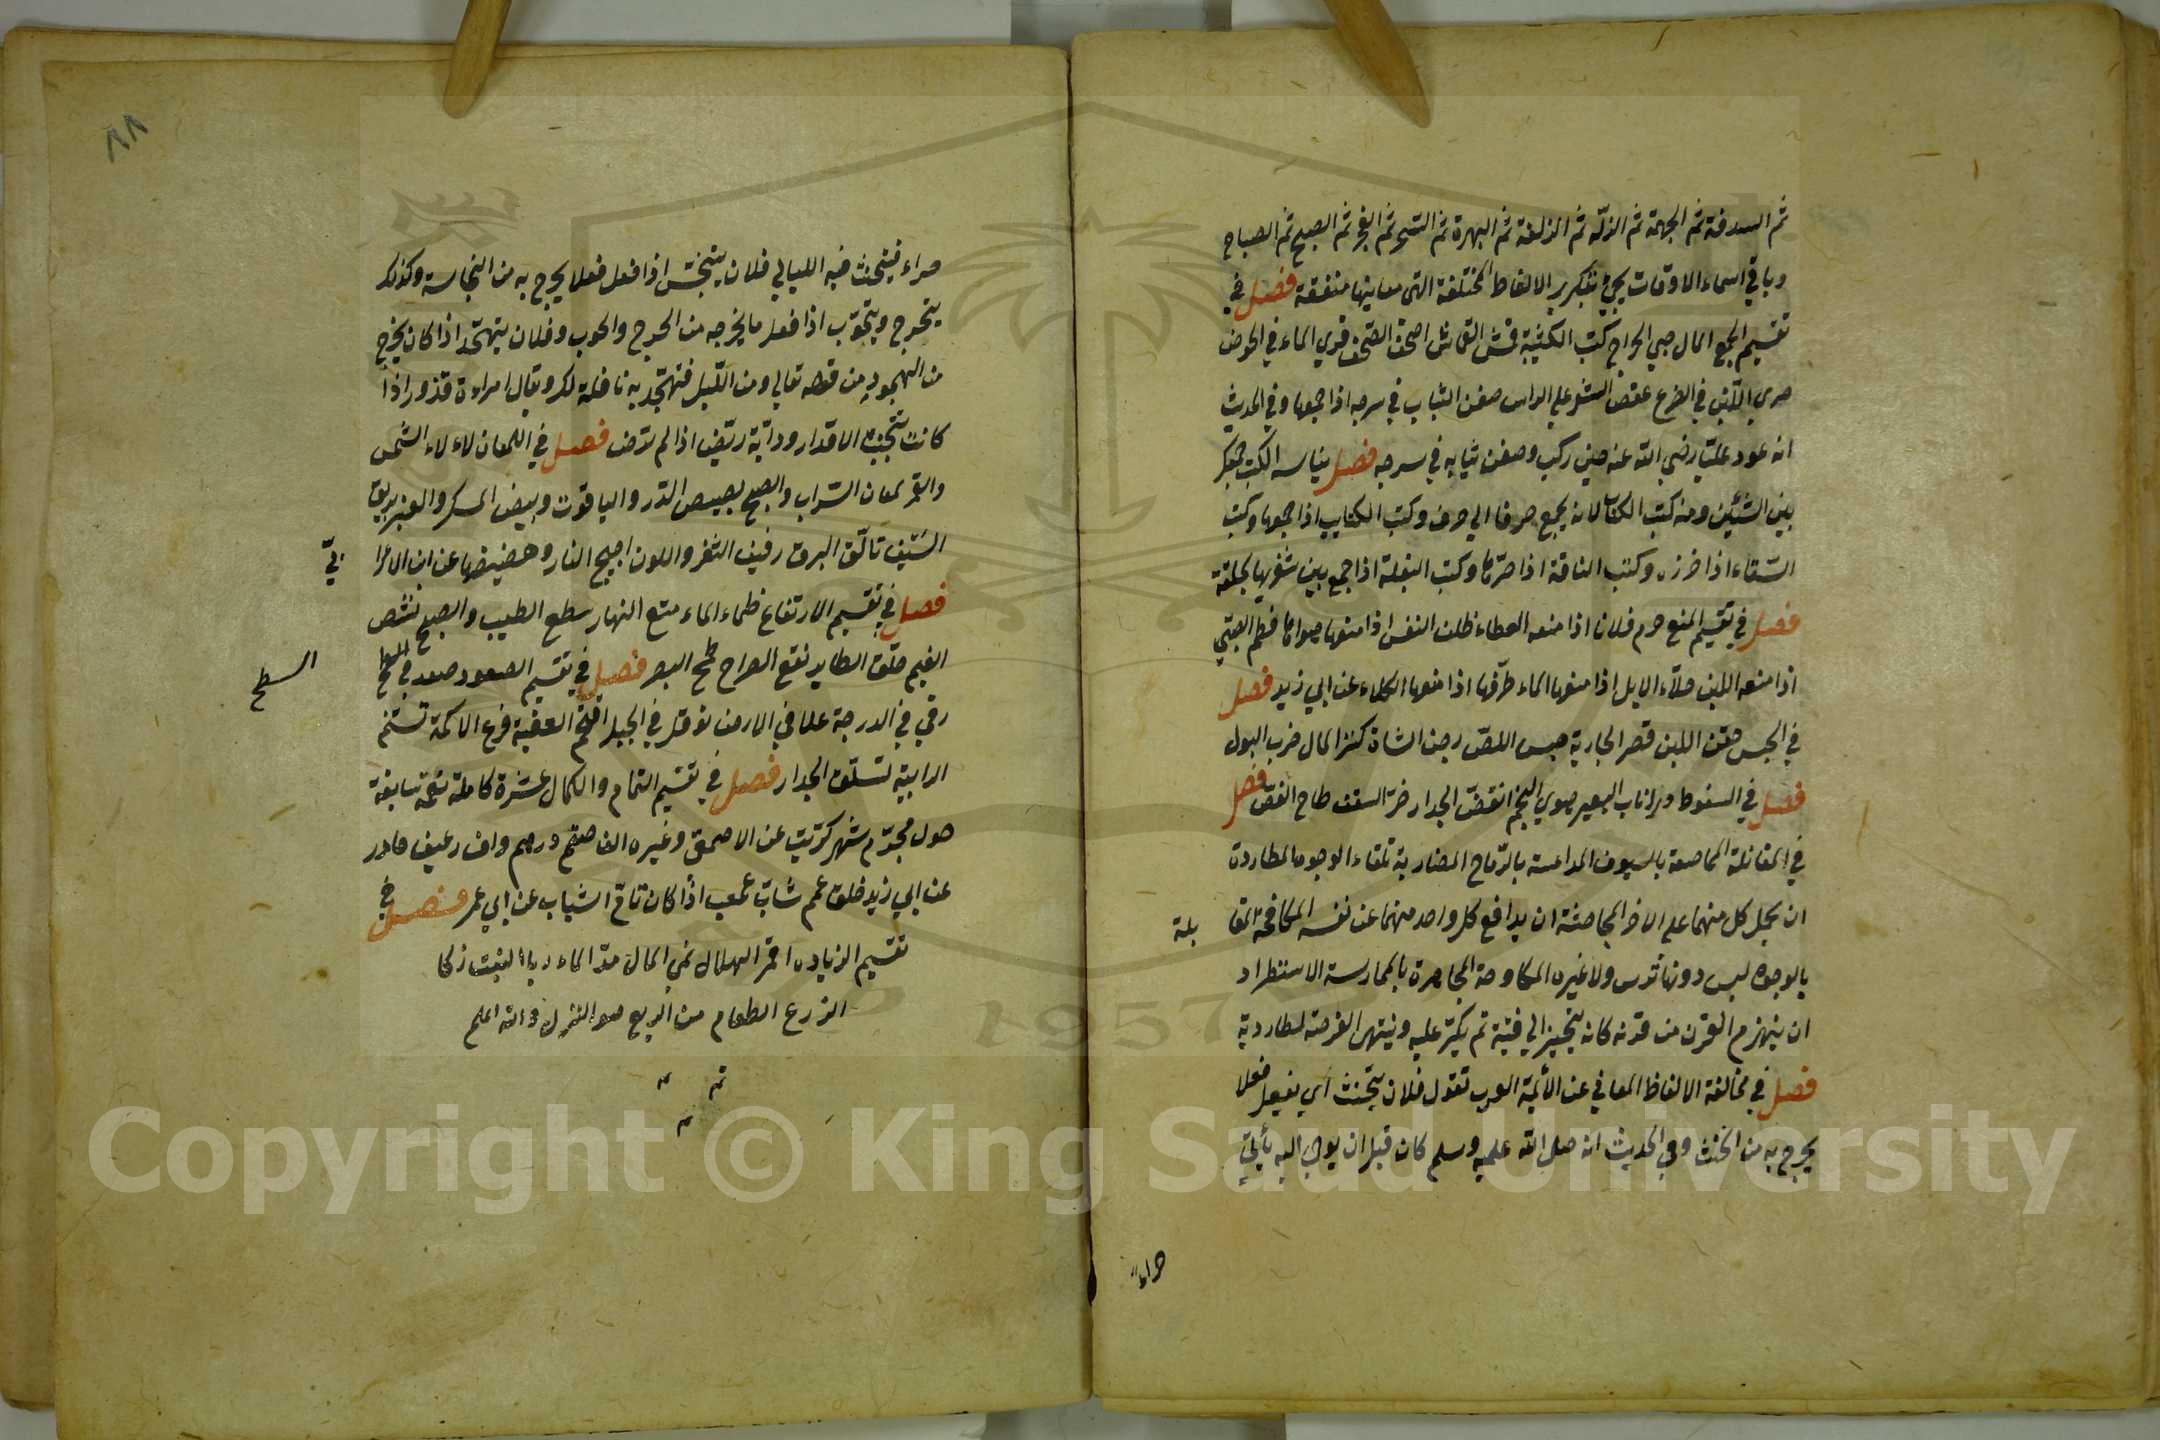 ثم السدفة ثم الجهمة ثم الزلّة ثم الزلفة ثم البهرة ثم السحر ثم الفجر ثم الصبح ثم الصباح
وباقي اسماء الاوقات يجئ بتكرير الالفاظ المختلفة التى معانيها متفقة فصل في
تقسيم الجمع المال جبي الخراج كتب الكتيبة قمش القماش اصحف المصحف قري الماء في الحوض
صري اللبن في الضرع عقص الشعر علي الراس صفن الثياب في سرجه اذا جمعها وفي الحديث
انه عوذ عليّا رضي الله عنه حين ركب وصفن ثيابه في سرجه فصل يناسبه الكتب جمعك
بين الشيئين ومنه كتب الكتاب لانه يجمع حرفا الي حرف وكتب الكتايب اذا جمعها وكتب
السّقاء اذا خرزه وكتب الناقة اذا صرّها وكتب البغلة اذا جمع بين شفريها بحلقة
فصل في تقسيم المنع حرم فلانا اذا منعه العطاء ظلف النفس اذا منعها هواها فطم الصبيّ
اذا منعه اللبن حلّاء الابل اذا منعها الماء طرّفها اذا منعها الكلاء عن ابي زيد فصل
في الحبس حقن اللبن قصر الجارية حبس اللصّ رجن الشاة كنز المال صرب البول
فصل في السقوط درا ناب البعير هوي النجم انقضّ الجدار خرّ السقف طاح الفصّ فصل
في المقاتلة المماصعة بالسيوف المداعسة بالرّماح المضاربة تلقاء الوجوه المطاردة
ان يحمل كل منهما علي الاخر المجاحشة ان يدافع كل واحد منهما عن نفسه المكافحة المقا بلة
بالوجوه ليس دونها ترس ولا غيره المكاوحة المجاهرة بالممارسة الاستطراد
ان ينهزم القرن من قرنه كانه يتحيز الي فئة ثم يكرّ عليه وينتهز الفرصة لمطاردته
فصل في مخالفة الالفاظ المعاني عن الأئمة العرب تقول فلان يتحنث اي يفعل فعلا
يخرج به من الحنث وفي الحديث انه صلى الله عليه وسلم كان قبل ان يوحي اليه يأتي
حراء
٨٨
حراء فيتحنث فيه الليالي فلان يتنجّس اذا فعل فعلا يخرج به من النجاسة وكذلك
يتحرج ويتحوّب اذا فعل ما يخرجه من الحرج والحوب وفلان يتهجّد اذا كان يخرج
من الهجود من قوله تعالي ومن اللّيل فتهجّد به نافلة لك ويقال امراءة قذور اذا
كانت تتجنّب الاقذار ودابّة ريّض اذا لم ترض فصل في اللمعان لاءلاء الشمس
والقمر لمعان السّراب والصبح بصيص الدّر والياقوت وبيض المسك والعنبر بريق
السّيف تالّق البرق رفيف الثغر واللون اجيج النار وهصيصها عن ابن الاعرا بيّ
فصل في تقسيم الارتفاع طماء الماء متع النهار سطع الطيب والصبح نشص
الغيم حلّق الطاير نقع الصراخ طمح البصر فصل في تقسيم الصعود صعد في السطح
السطح
رقي في الدرجة علا في الارض توقل في الجبل اقتحم العقبة فرع الاكمة تسنّم
الرابية تسلّق الجدار فصل في تقسيم التمام والكمال عشرة كاملة نعمة سابغة
حول مجرّم شهر كريت عن الاصمعي وغيره الف صتم درهم واف رغيف حادر
عن ابي زيد خلق عمم شابّ عبعب اذا كان تامّ الشباب عن ابي عمر فصل في
تقسيم الزيادة اقمر الهلال نمي المال مدّ الماء ربا النبت زكا
الزرع الطعام من الريع هو النزل والله اعلم
تم